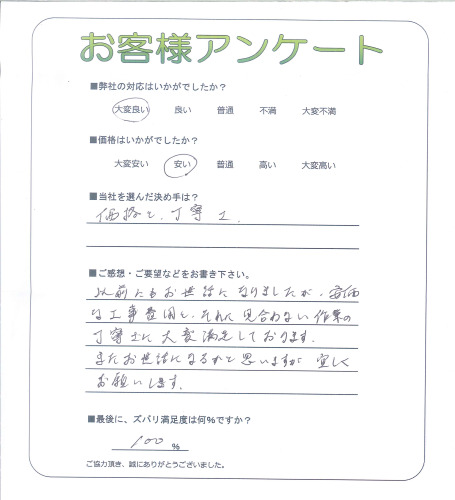 お客様アンケート
■弊社の対応はいかがでしたか？
大変良い 良い 普通 不満 大変不満
■価格はいかがでしたか？
大変安い 安い 普通 高い 大変高い
■当社を選んだ決め手は？
価格と、丁寧さ、
■ご感想・ご要望などをお書き下さい。
以前にもお世話になりましたが、安価
な工事費用と、それに見合わない作業の
丁寧さに大変満足しております。
またお世話になるかと思いますが 宜しく
お願いします。
■最後に、ズバリ満足度は何%ですか？
100 %
ご協力頂き、誠にありがとうございました。